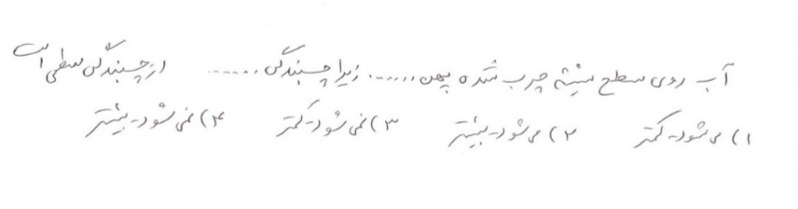 آب روی سطح شیشه چرب شده پهن ...... زیرا چسبندگی ...... از چسبندگی سطحی است
۱) می شود - کمتر ۲) می شود - بیشتر ۳) نمی شود - کمتر ۴) نمی شود - بیشتر